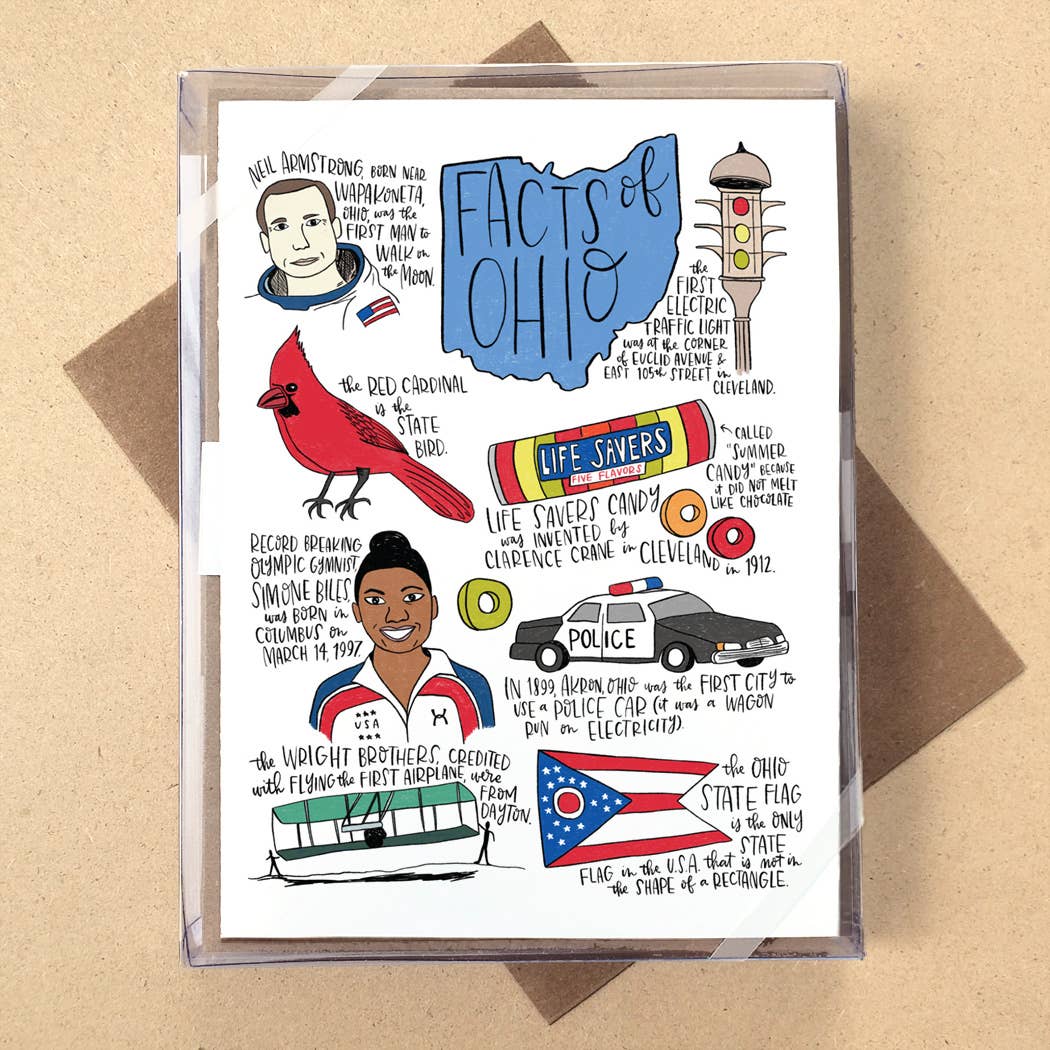 NEIL ARMSTRONG, BORN NEAR
WAPAKONETA,
OHIO, was the
FIRST MAN to
WALK on
the MOON.
FACTS of
OHIO
the
FIRST
ELECTRIC
TRAFFIC LIGHT
was at the CORNER
of EUCLID AVENUE &
EAST 105th STREET in
CLEVELAND.
the RED CARDINAL
is the
STATE
BIRD.
LIFE SAVERS
FIVE FLAVORS
CALLED
"SUMMER
CANDY" BECAUSE
it DID NOT MELT
LIKE CHOCOLATE
LIFE SAVERS CANDY
was INVENTED by
CLARENCE CRANE in CLEVELAND in 1912.
RECORD BREAKING
OLYMPIC GYMNIST
SIMONE BILES,
was BORN in
COLUMBUS on
MARCH 14, 1997.
USA
POLICE
IN 1899, AKRON, OHIO was the FIRST CITY to
USE a POLICE CAR (it was a WAGON
RUN on ELECTRICITY).
the WRIGHT BROTHERS, CREDITED
with FLYING the FIRST AIRPLANE, were
FROM
DAYTON.
the OHIO
STATE FLAG
is the ONLY
STATE
FLAG in the U.S.A. that is not in
the SHAPE of a RECTANGLE.